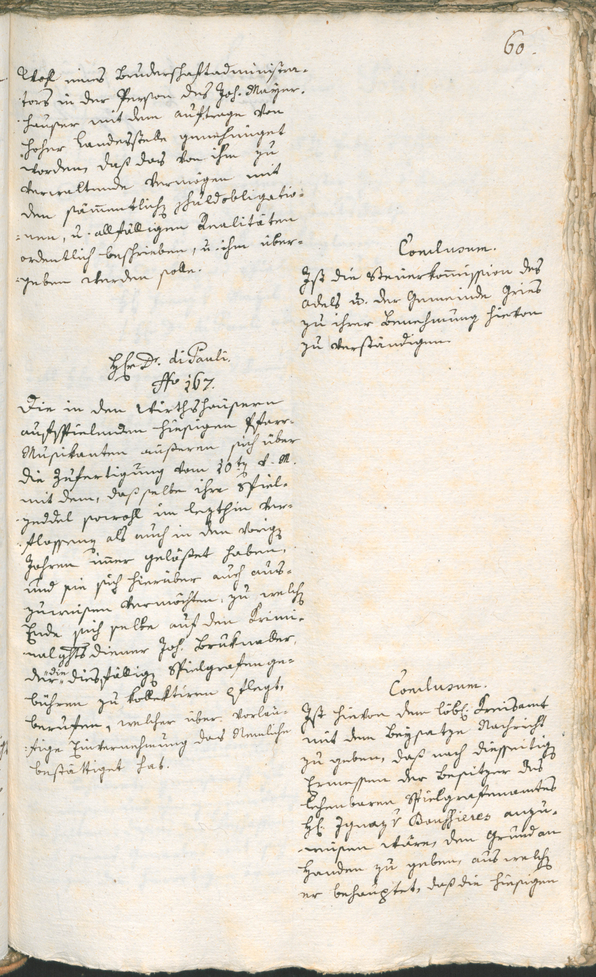 60.
Wahl eines Bruderschaftadministra-
tors in der Person des Joh. Mayer-
hauser mit dem Auftrage von
hoher Landesstelle genehmiget
worden, daß das von ihm zu
verwaltende Vermögen mit
den sämmentlich Schuldobligatio-
nen, u. allfälligen Realitäten
ordentlich beschrieben, u. ihm über-
geben werden solle.
Conclusum.
Ist die Steuerkommission des
Adels u. der Gemeinde Gries
zu ihrer Benehmung hievon
zu verständigen
H. Dr. di Pauli.
No 167.
Die in den Wirthshäusern
aufspielenden hiesigen Pfarr-
Musikanten äußeren sich über
die Zufertigung vom 10ten d. M.
mit dem, daß selbe ihre Spiel-
zeddel sowohl im letzthin ver-
flossenen als auch in den vorig
Jahren immer gelößet haben,
und sie sich hierüber auch aus-
zuweisen vermöchten, zu welch
Ende sich selbe auf den Krimi-
nalghtsdiener Joh. Brukmaber,
der die diesfällig Spielgrafenge-
bühren zu kollektiren pflegt,
berufen, welcher über vorläu-
fige Einvernehmung das Nemliche
bestättiget hab.
Conclusum.
Ist hievon dem löbl. Kreisamt
mit dem Beysatze Nachricht
zu geben, daß nach diesseitig
Ermessen der Besitzer des
lehenbaren Spielgrafenamtes
H. Ignaz v. anzu-
weisen wäre, den Grund an
Handen zu geben, aus welch
er behauptet, daß die hiesigen